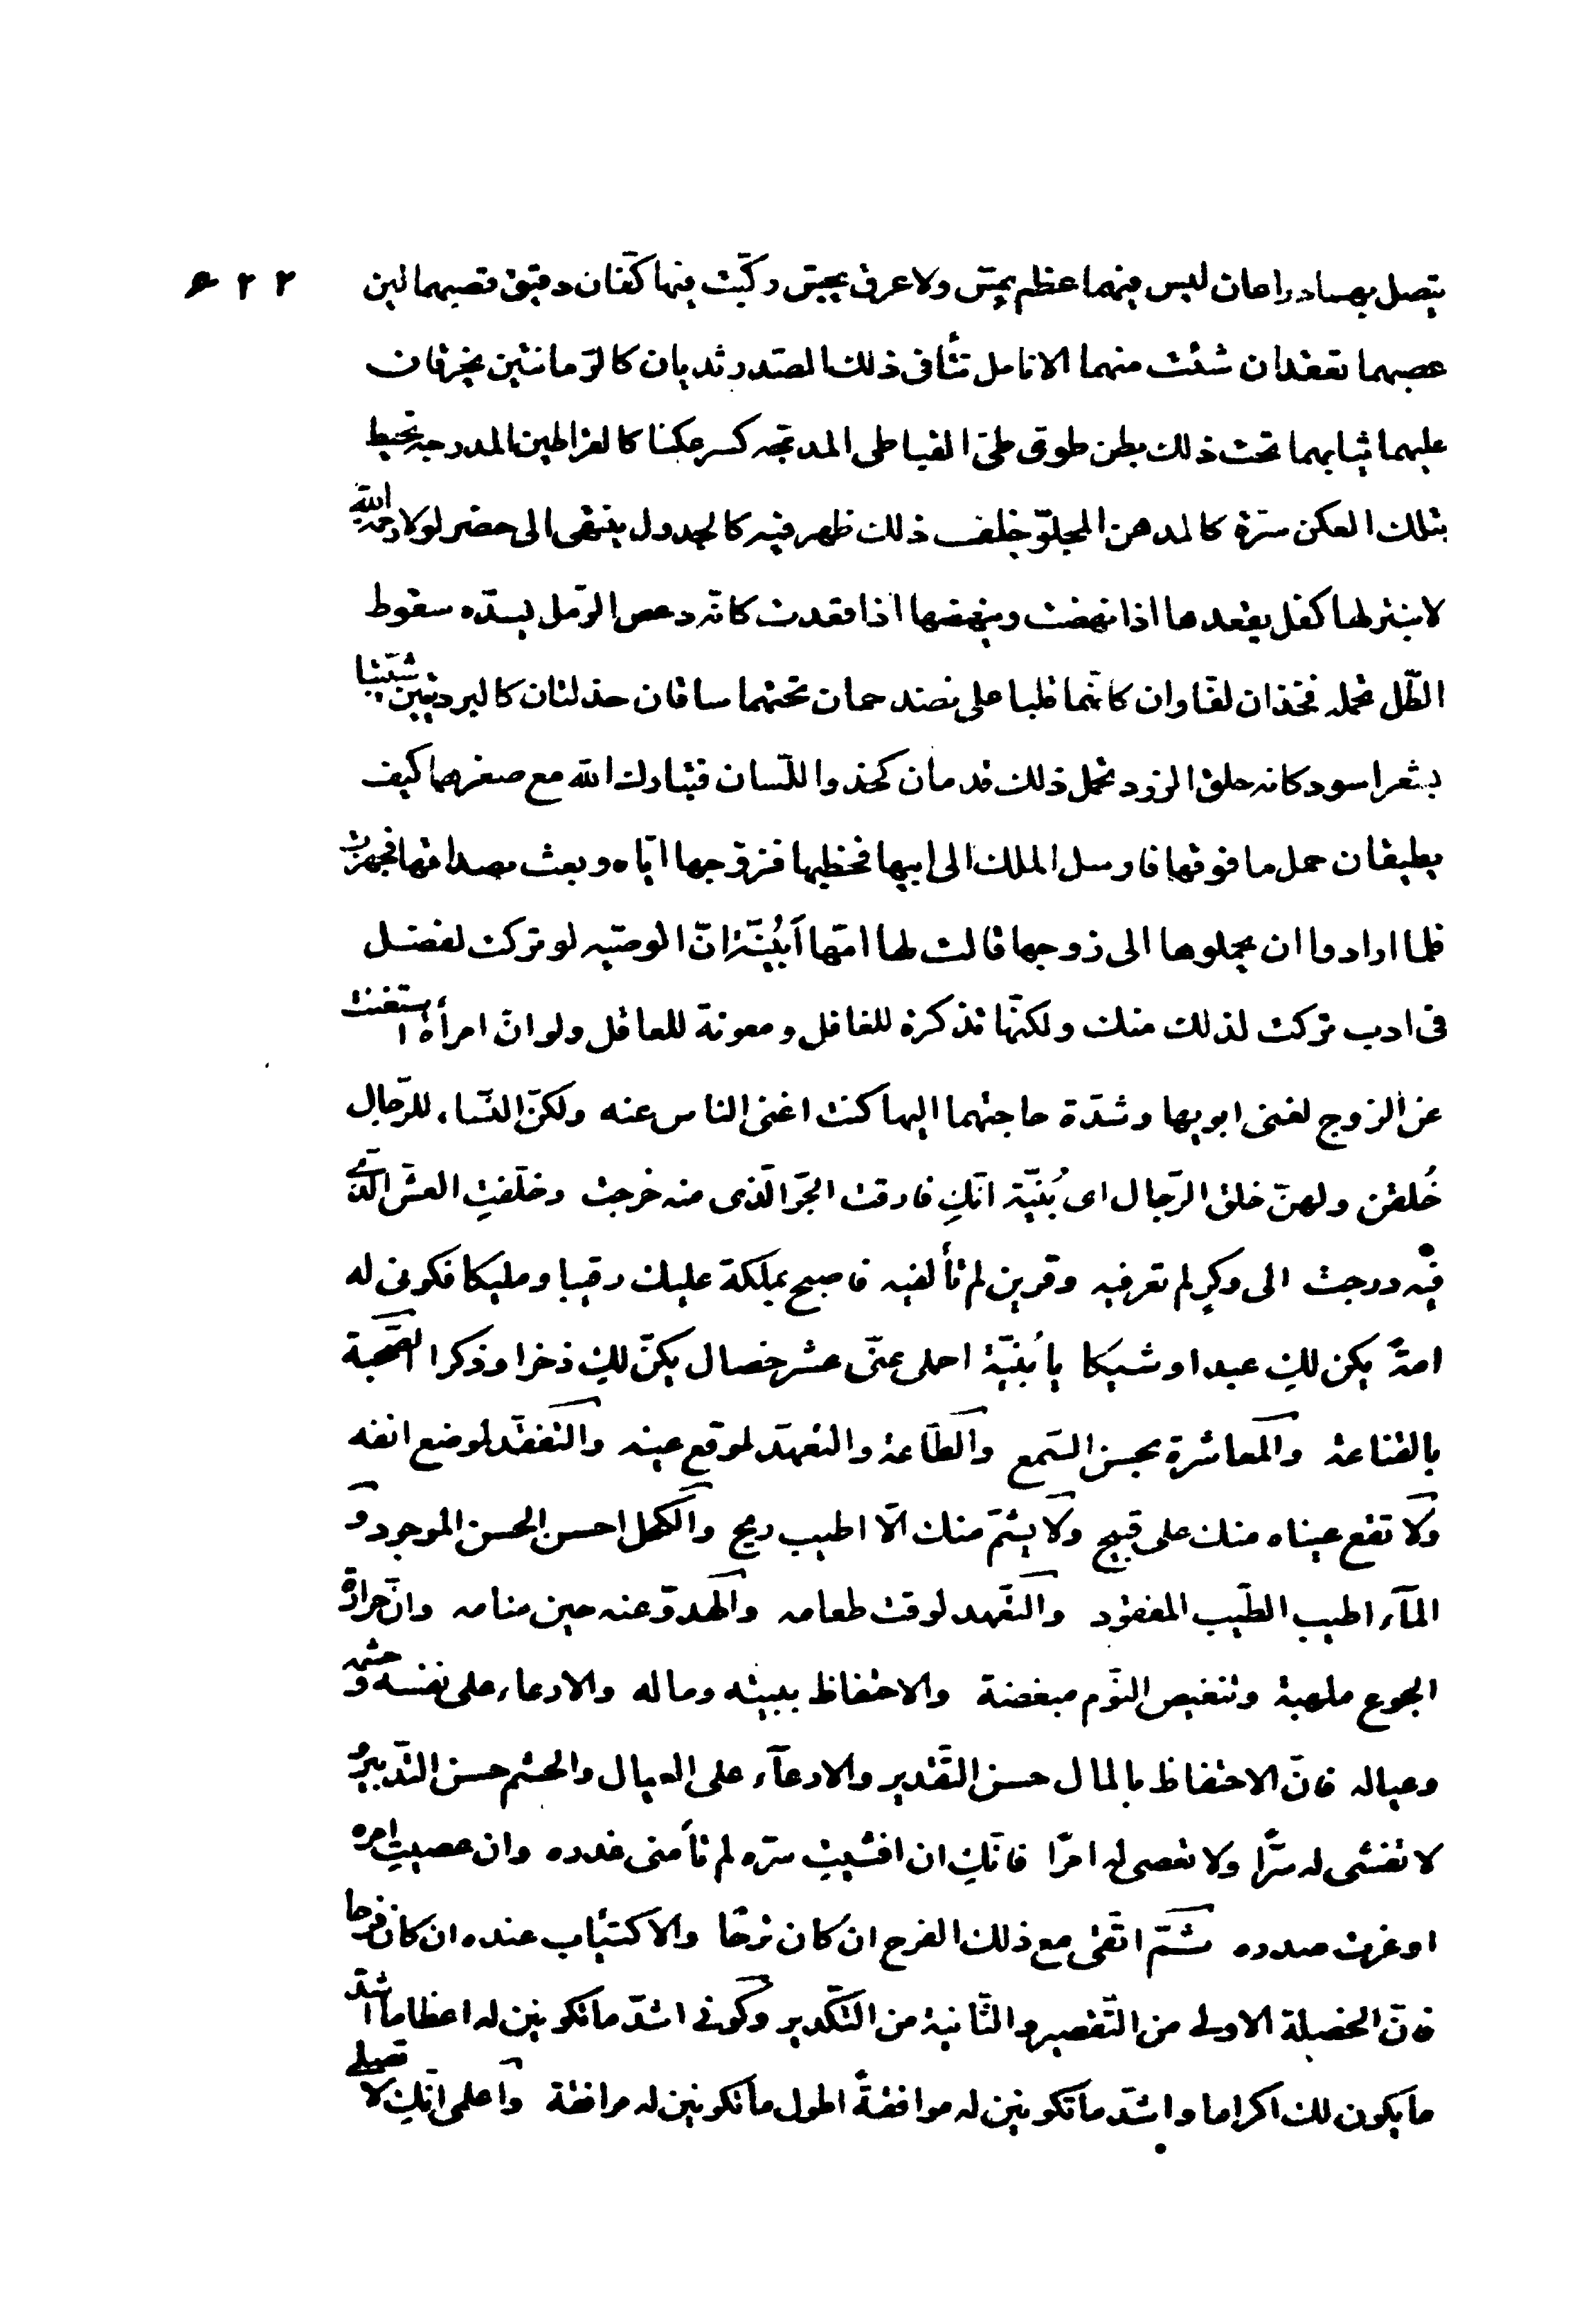 يتصل بهما ذراعان ليس فيهما عظم يمسّ ولا عرق يجسّ ركّبت فيها كفّان دقيق قصبهما لين ٢٢
عصبهما تعقدان شئت منهما الانامل نتأ فى ذلك الصّدر ثديان كالرّمانتين يخرقان
عليهما ثيابهما تحت ذلك بطن طوى طىّ القباطى المدبّجه كسر عكنا كالقراطيس المدرجة تحيط
بتلك العكن سرّة كالمدهن المجلوّ خلف ذلك ظهر فيه كالجدول ينتهى الى خصر لولا رحمة الله
لانبتر لها كفل يقعدها اذا نهضت وينهضها اذا قعدت كانّه دعص الرّمل لبّده سقوط
الطّل تحمله فخذان لفّاوان كانّما قلبا على نضد جمان تحتهما ساقان خدلتان كالبرديّتين شيّبتا
بشعر اسود كانه حلق الزرد تحمل ذلك قدمان كحذو اللّسان فتبارك الله مع صغرهما كيف
يطيقان حمل ما فوقها فارسل الملك الى ابيها فخطبها فزوّجها ايّاه وبعث بصداقها فجهزت
فلما ارادوا ان يحملوها الى زوجها قالت لها امّها أبُنيّة انّ الوصيّه لو تركت لفضل
فى ادب تركت لذلك منك ولكنّها تذكرة للغافل ومعونة للعاقل ولو انّ امرأة استغنت
عن الزوج لغنى ابويها وشدّة حاجتهما اليها كنت اغنى الناس عنه ولكنّ النّساء للرّجال
خُلقن ولهنّ خلق الرّجال اى بُنيّة انّكِ فارقت الجوّ الّذى منه خرجت وخلّفتِ العشّ الّذى
فيه درجت الى وكرٍ لم تعرفيه وقرين لم تألفيه فاصبح بملكة عليك رقيبا ومليكا فكونى له
امةً يكن لكِ عبدا وشيكا يا بُنيّة احملى عنّى عشر خصال يكنّ لكِ ذخرا وذكرا الصّحبة
بالقناعة والمعاشرة بحسن السّمع والطّاعة والتعهّد لموقع عينه والتفقّد لموضع انفه
ولا تقع عيناه منك على قبيح ولا يشمّ منك الّا اطيب ريح والكحل احسن الحسن الموجود و
المآء اطيب الطّيب المفقود والتعّهد لوقت طعامه والهدوّ عنه حين منامه وانّ حرارة
الجوع ملهبة وتنغيص النّوم مبغضة والاحتفاظ ببيته وماله والارعاء على نفسه وحشمه
وعياله فانّ الاحتفاظ بالمال حسن التّقدير والارعآء على العيال والحشم حسن التّدبير و
لا تفشى له سرّا ولا تعصى له امرًا فانّكِ ان افشيتِ سرّه لم تأمنى غدره وان عصيتِ امره
اوغرت صدره ثمّ اتّقى مع ذلك الفرح ان كان ترحًا والاكتئاب عنده ان كان فرحا
فانّ الخصلة الاولى من التّقصير والثّانية من التّكدير وكونى اشدّ ما تكونين له اعظاما اشدّ
ما يكون لك اكراما واشدّ ما تكونين له موافقةً اطول ما تكونين له مرافقة واعلمى انّكِ لا تصلى